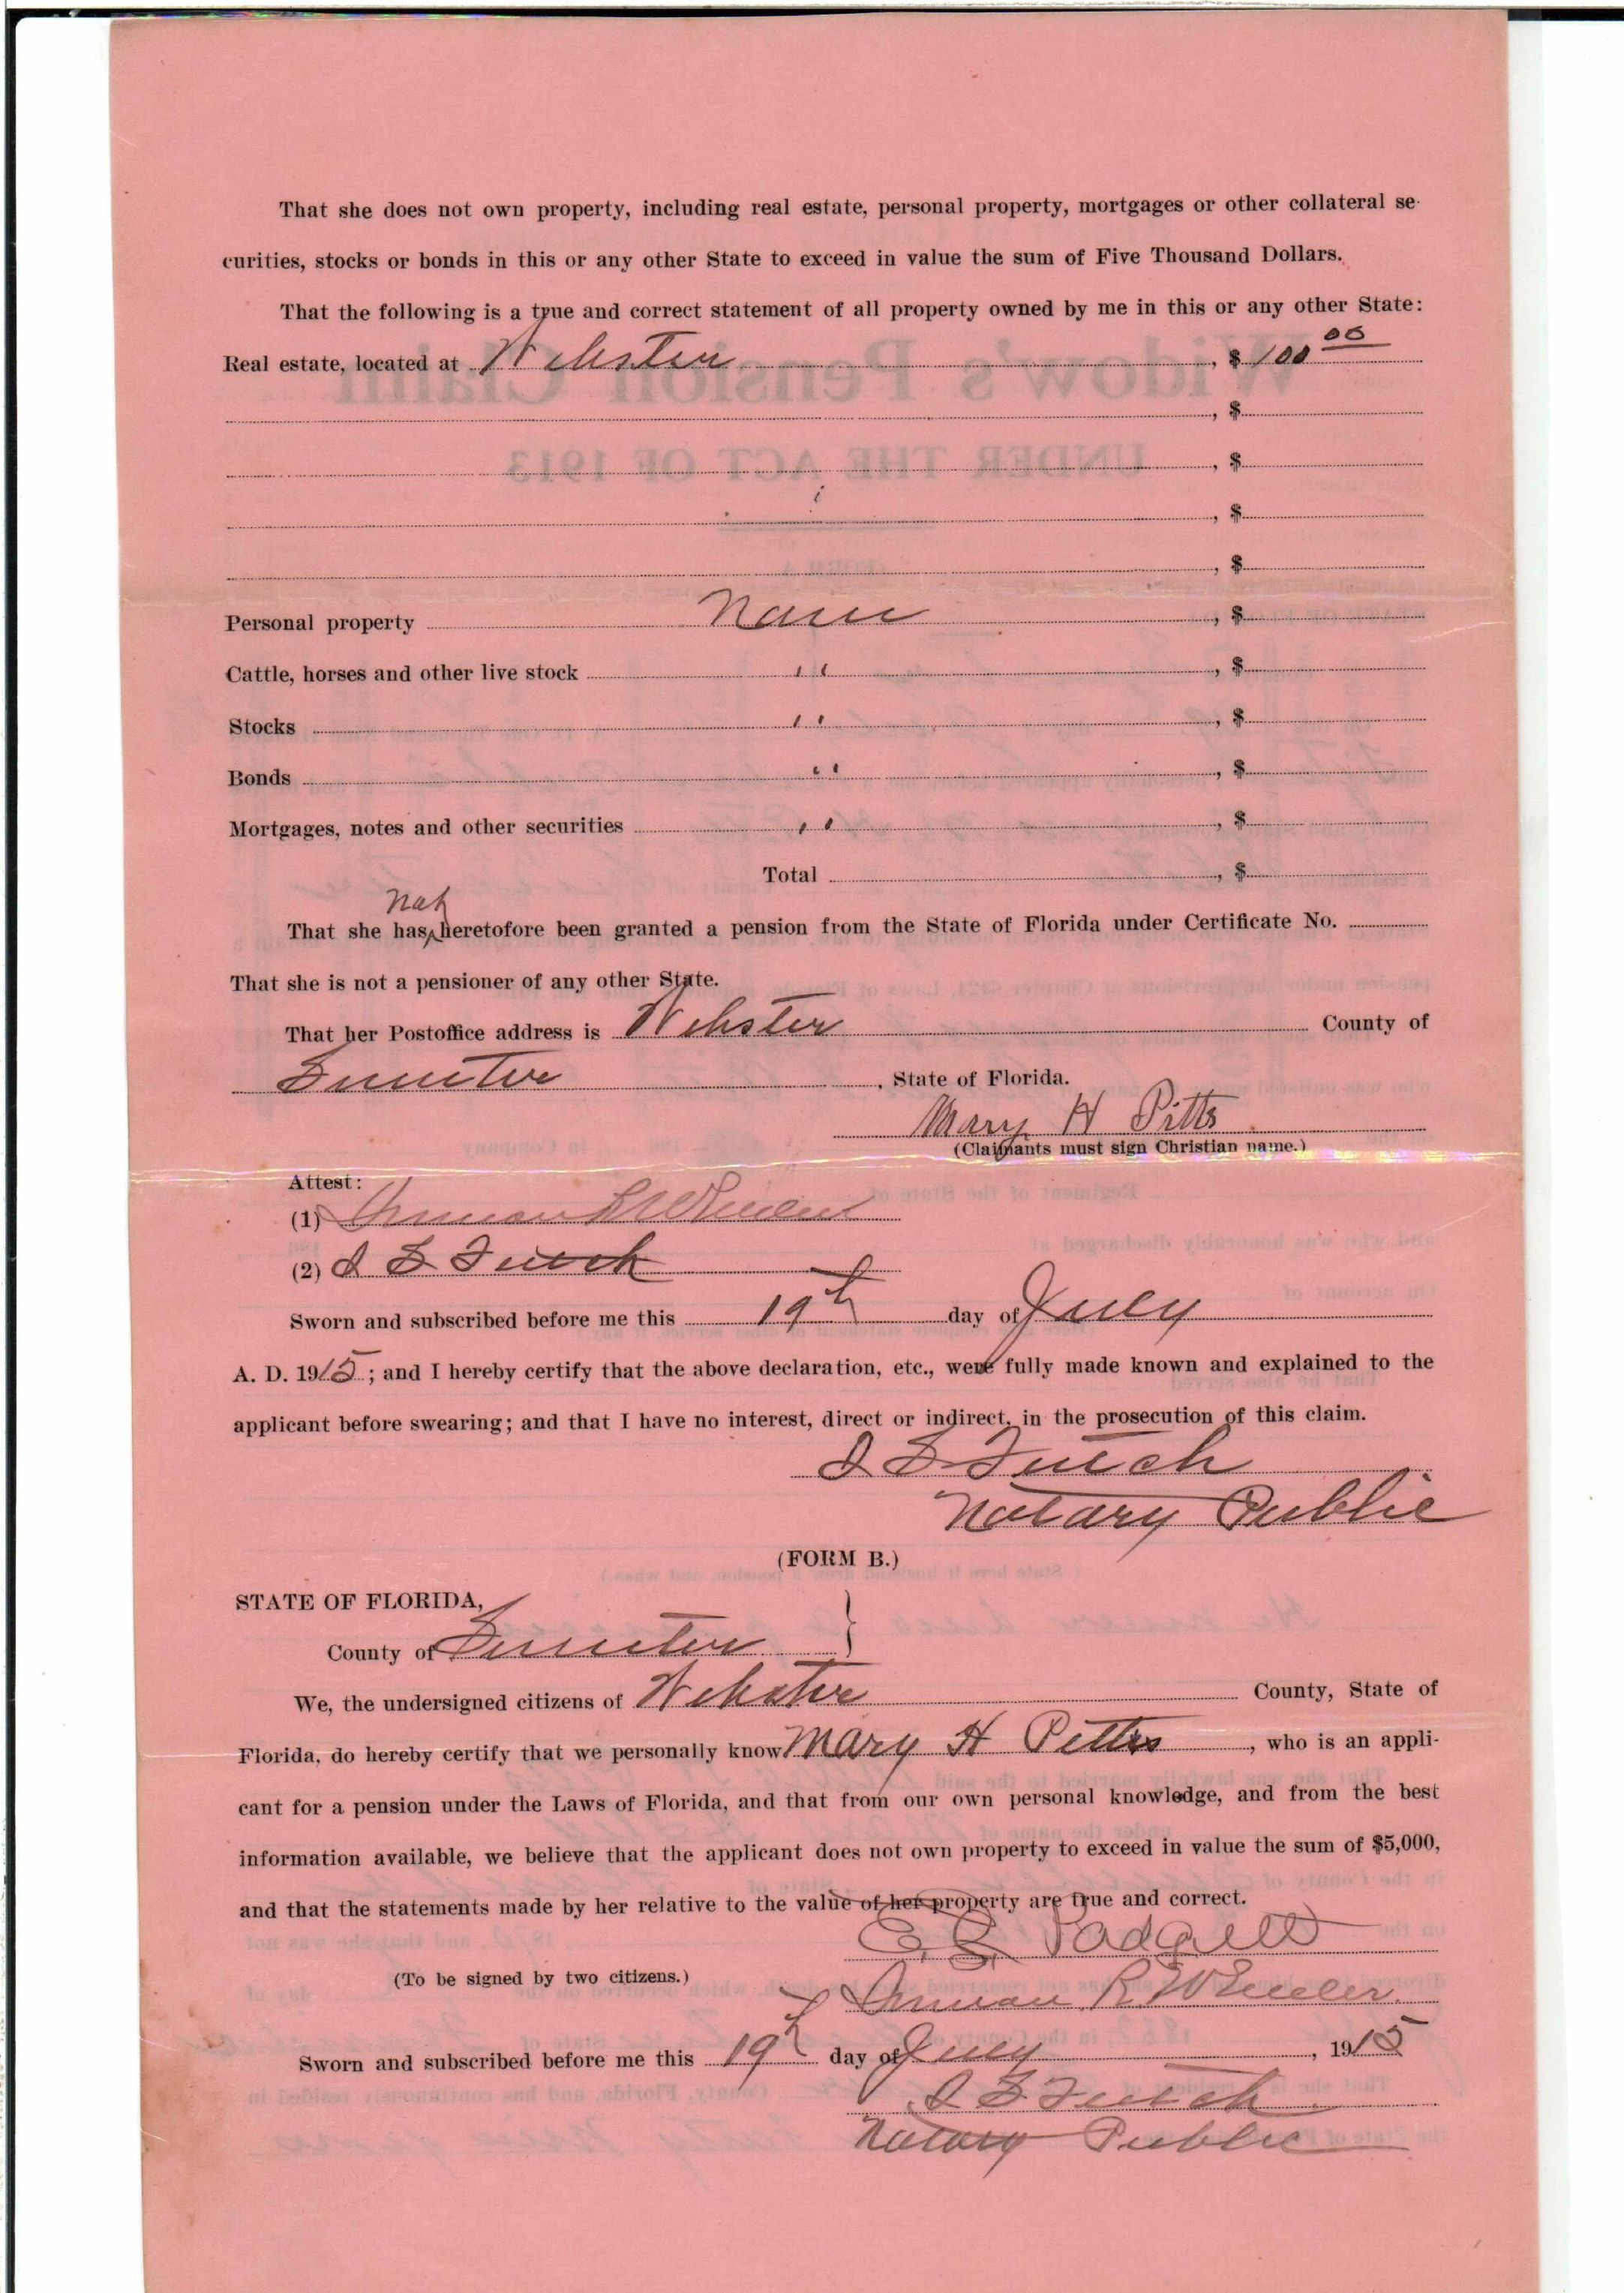 That she does not own property, including real estate, personal property, mortgages or other collateral se-
curities, stocks or bonds in this or any other State to exceed in value the sum of Five Thousand Dollars.
That the following is a true and correct statement of all property owned by me in this or any other State:
Real estate, located at Webster, $ 100 00
, $
, $
, $
, $
Personal property None, $
Cattle, horses and other live stock " , $
Stocks " , $
Bonds " , $
Mortgages, notes and other securities " , $
Total , $
not
That she has ^ heretofore been granted a pension from the State of Florida under Certificate No.
That she is not a pensioner of any other State.
That her Postoffice address is Webster County of
Sumter, State of Florida.
Mary H Pitts
(Claimants must sign Christian name.)
Attest:
(1) Inman R Wheeler
(2) I S Futch
Sworn and subscribed before me this 19th day of July
A. D. 1915; and I hereby certify that the above declaration, etc., were fully made known and explained to the
applicant before swearing; and that I have no interest, direct or indirect, in the prosecution of this claim.
I S Futch
Notary Public
(FORM B.)
STATE OF FLORIDA,
County of Sumter }
We, the undersigned citizens of Webster County, State of
Florida, do hereby certify that we personally know Mary H Pitts, who is an appli-
cant for a pension under the Laws of Florida, and that from our own personal knowledge, and from the best
information available, we believe that the applicant does not own property to exceed in value the sum of $5,000,
and that the statements made by her relative to the value of her property are true and correct.
Padgett
(To be signed by two citizens.)
Inman R Wheeler
Sworn and subscribed before me this 19th day of July, 1915
I S Futch
Notary Public